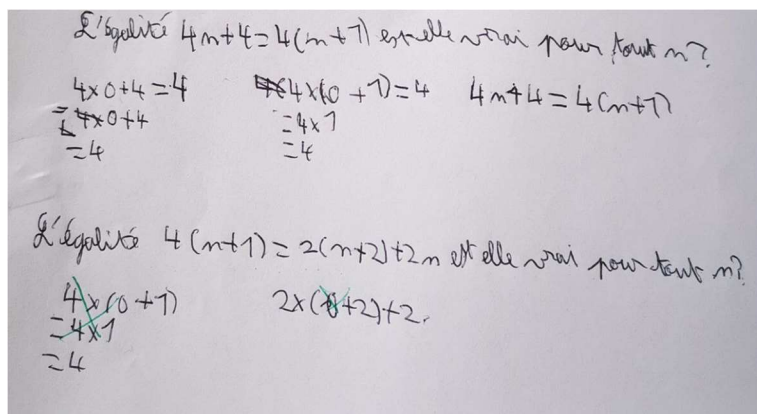 L'égalité 4n+4=4(n+1) est elle vrai pour tout n?
4×0+4=4 4×(0+1)=4 4n+4=4(n+1)
=4×0+4 =4×1
=4 =4
L'égalité 4(n+1)=2(n+2)+2n est elle vrai pour tout n?
4×(0+1) 2×(0+2)+2.
=4×1
=4